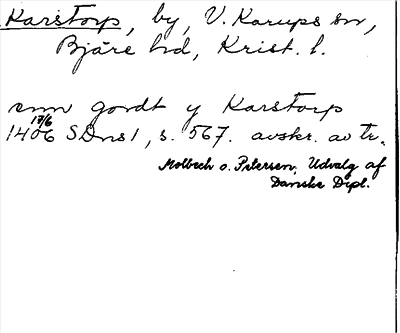 Karstorp, by, V. Karups sn,
Bjäre hd, Krist. l.
enn gordt y Karstorp
1406 17/6 SDns 1, s. 567. avskr. av tr.
Molbech o. Petersen, Udvalg af
Danske Dipl.